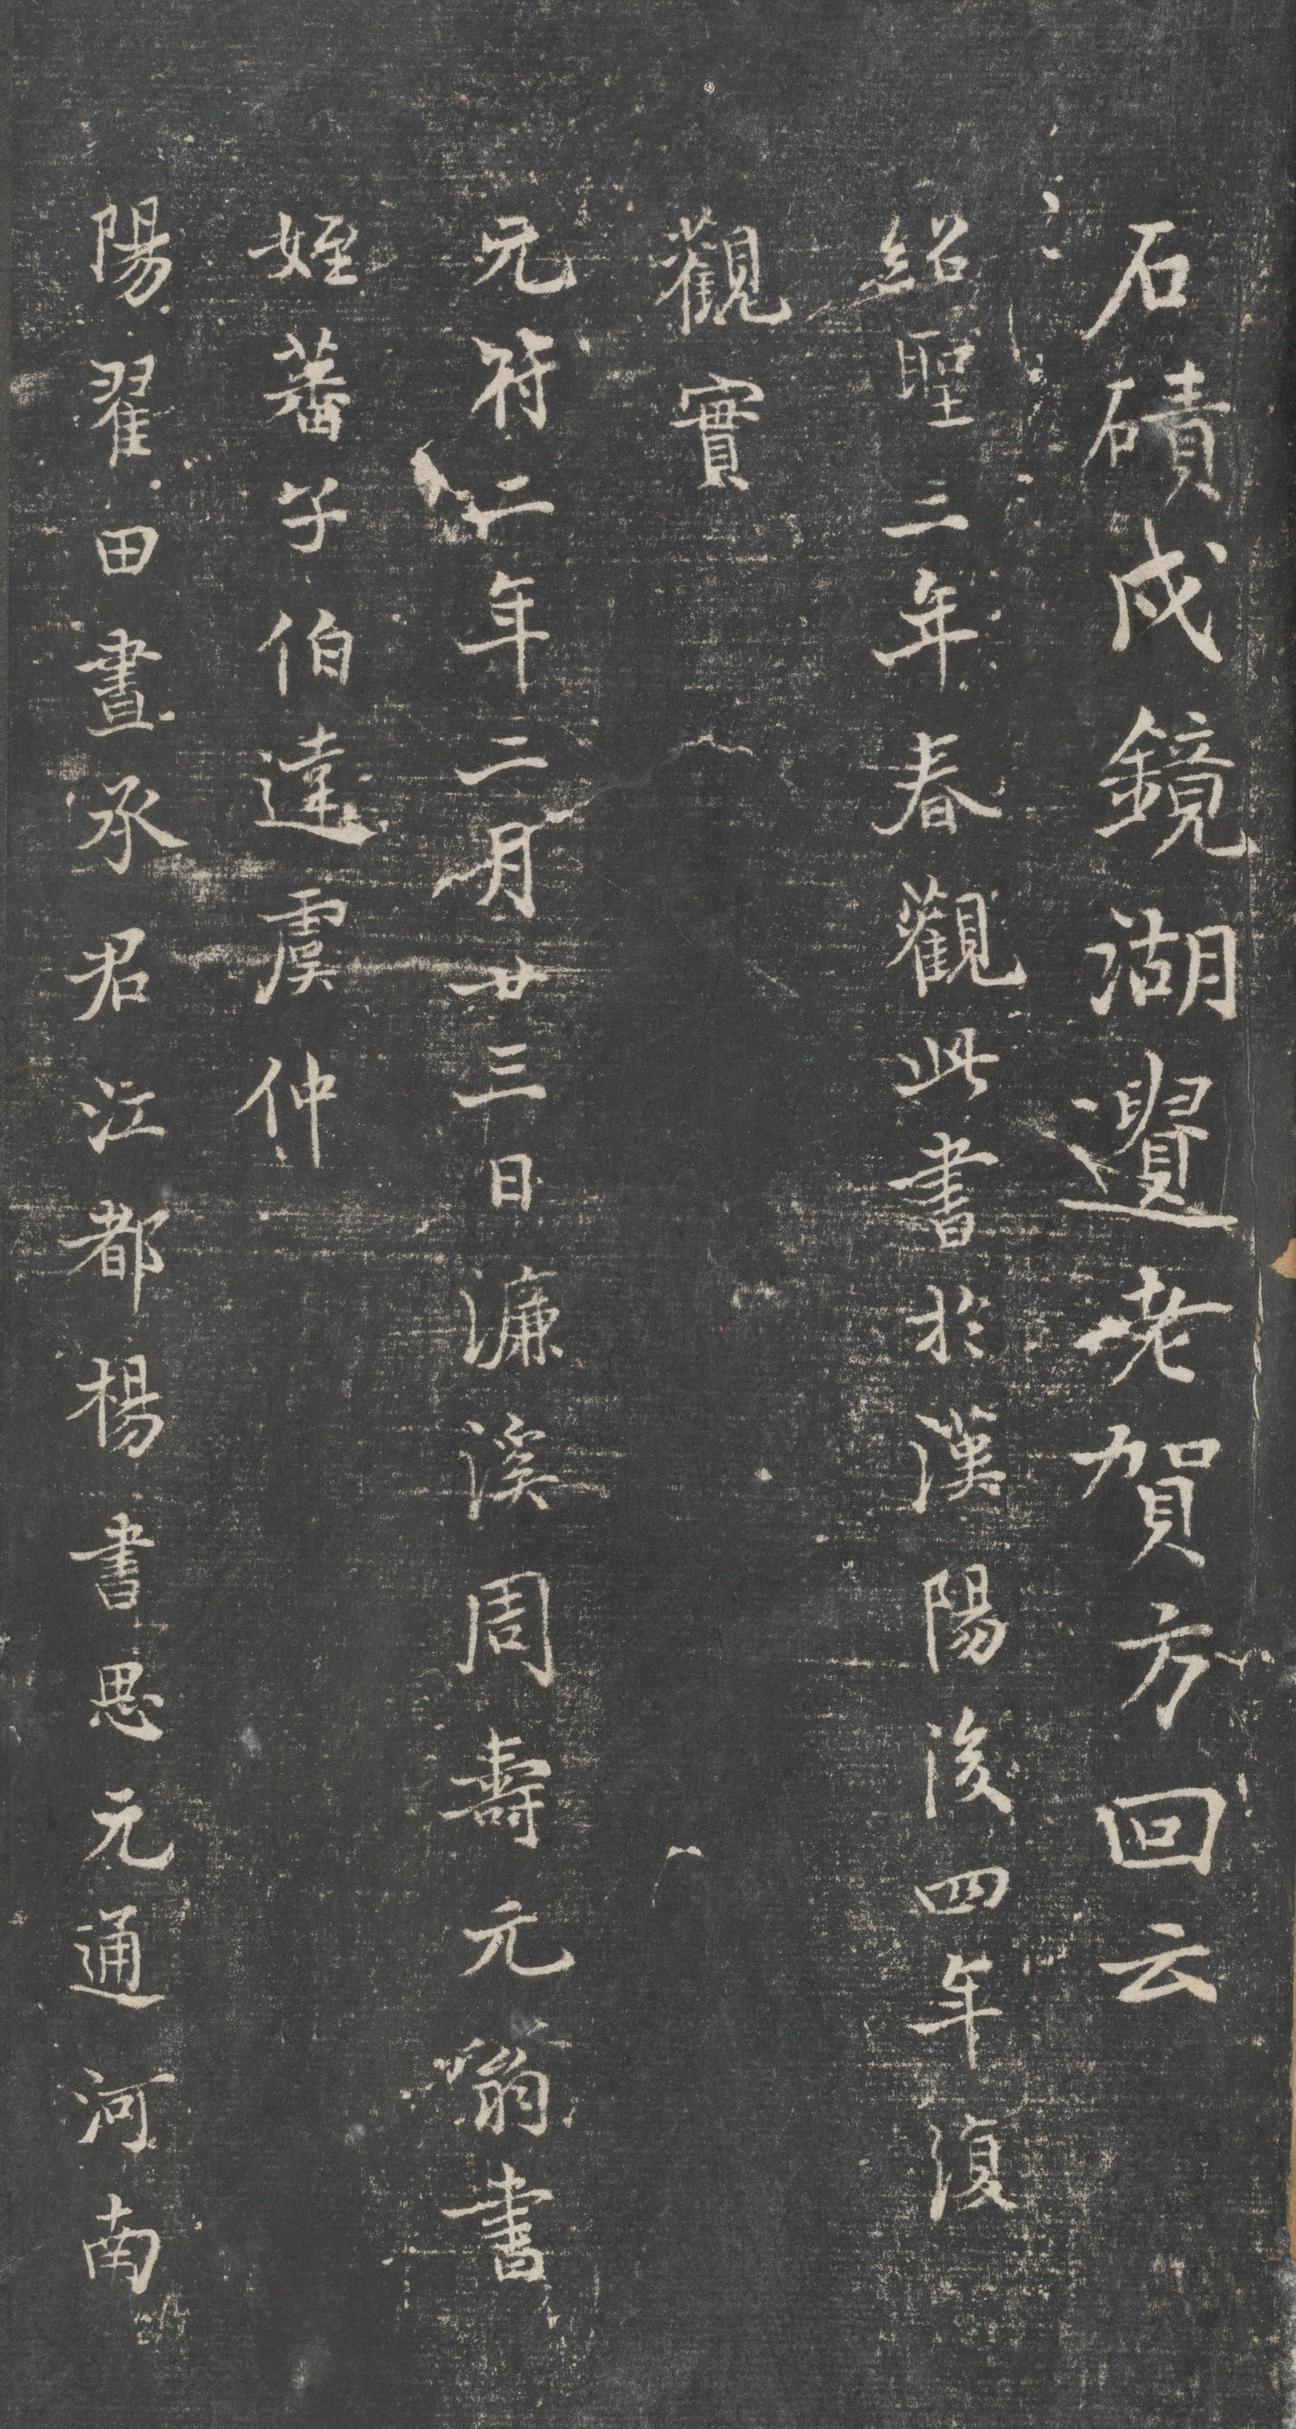 石磧戍鏡湖遺老賀方回云
紹聖三年春觀此書於漢陽後四年復
觀實
元符二年二月廿三日濂溪周壽元翁書
姪蕃子伯達虞仲
陽翟田晝承君江都楊書思元通河南